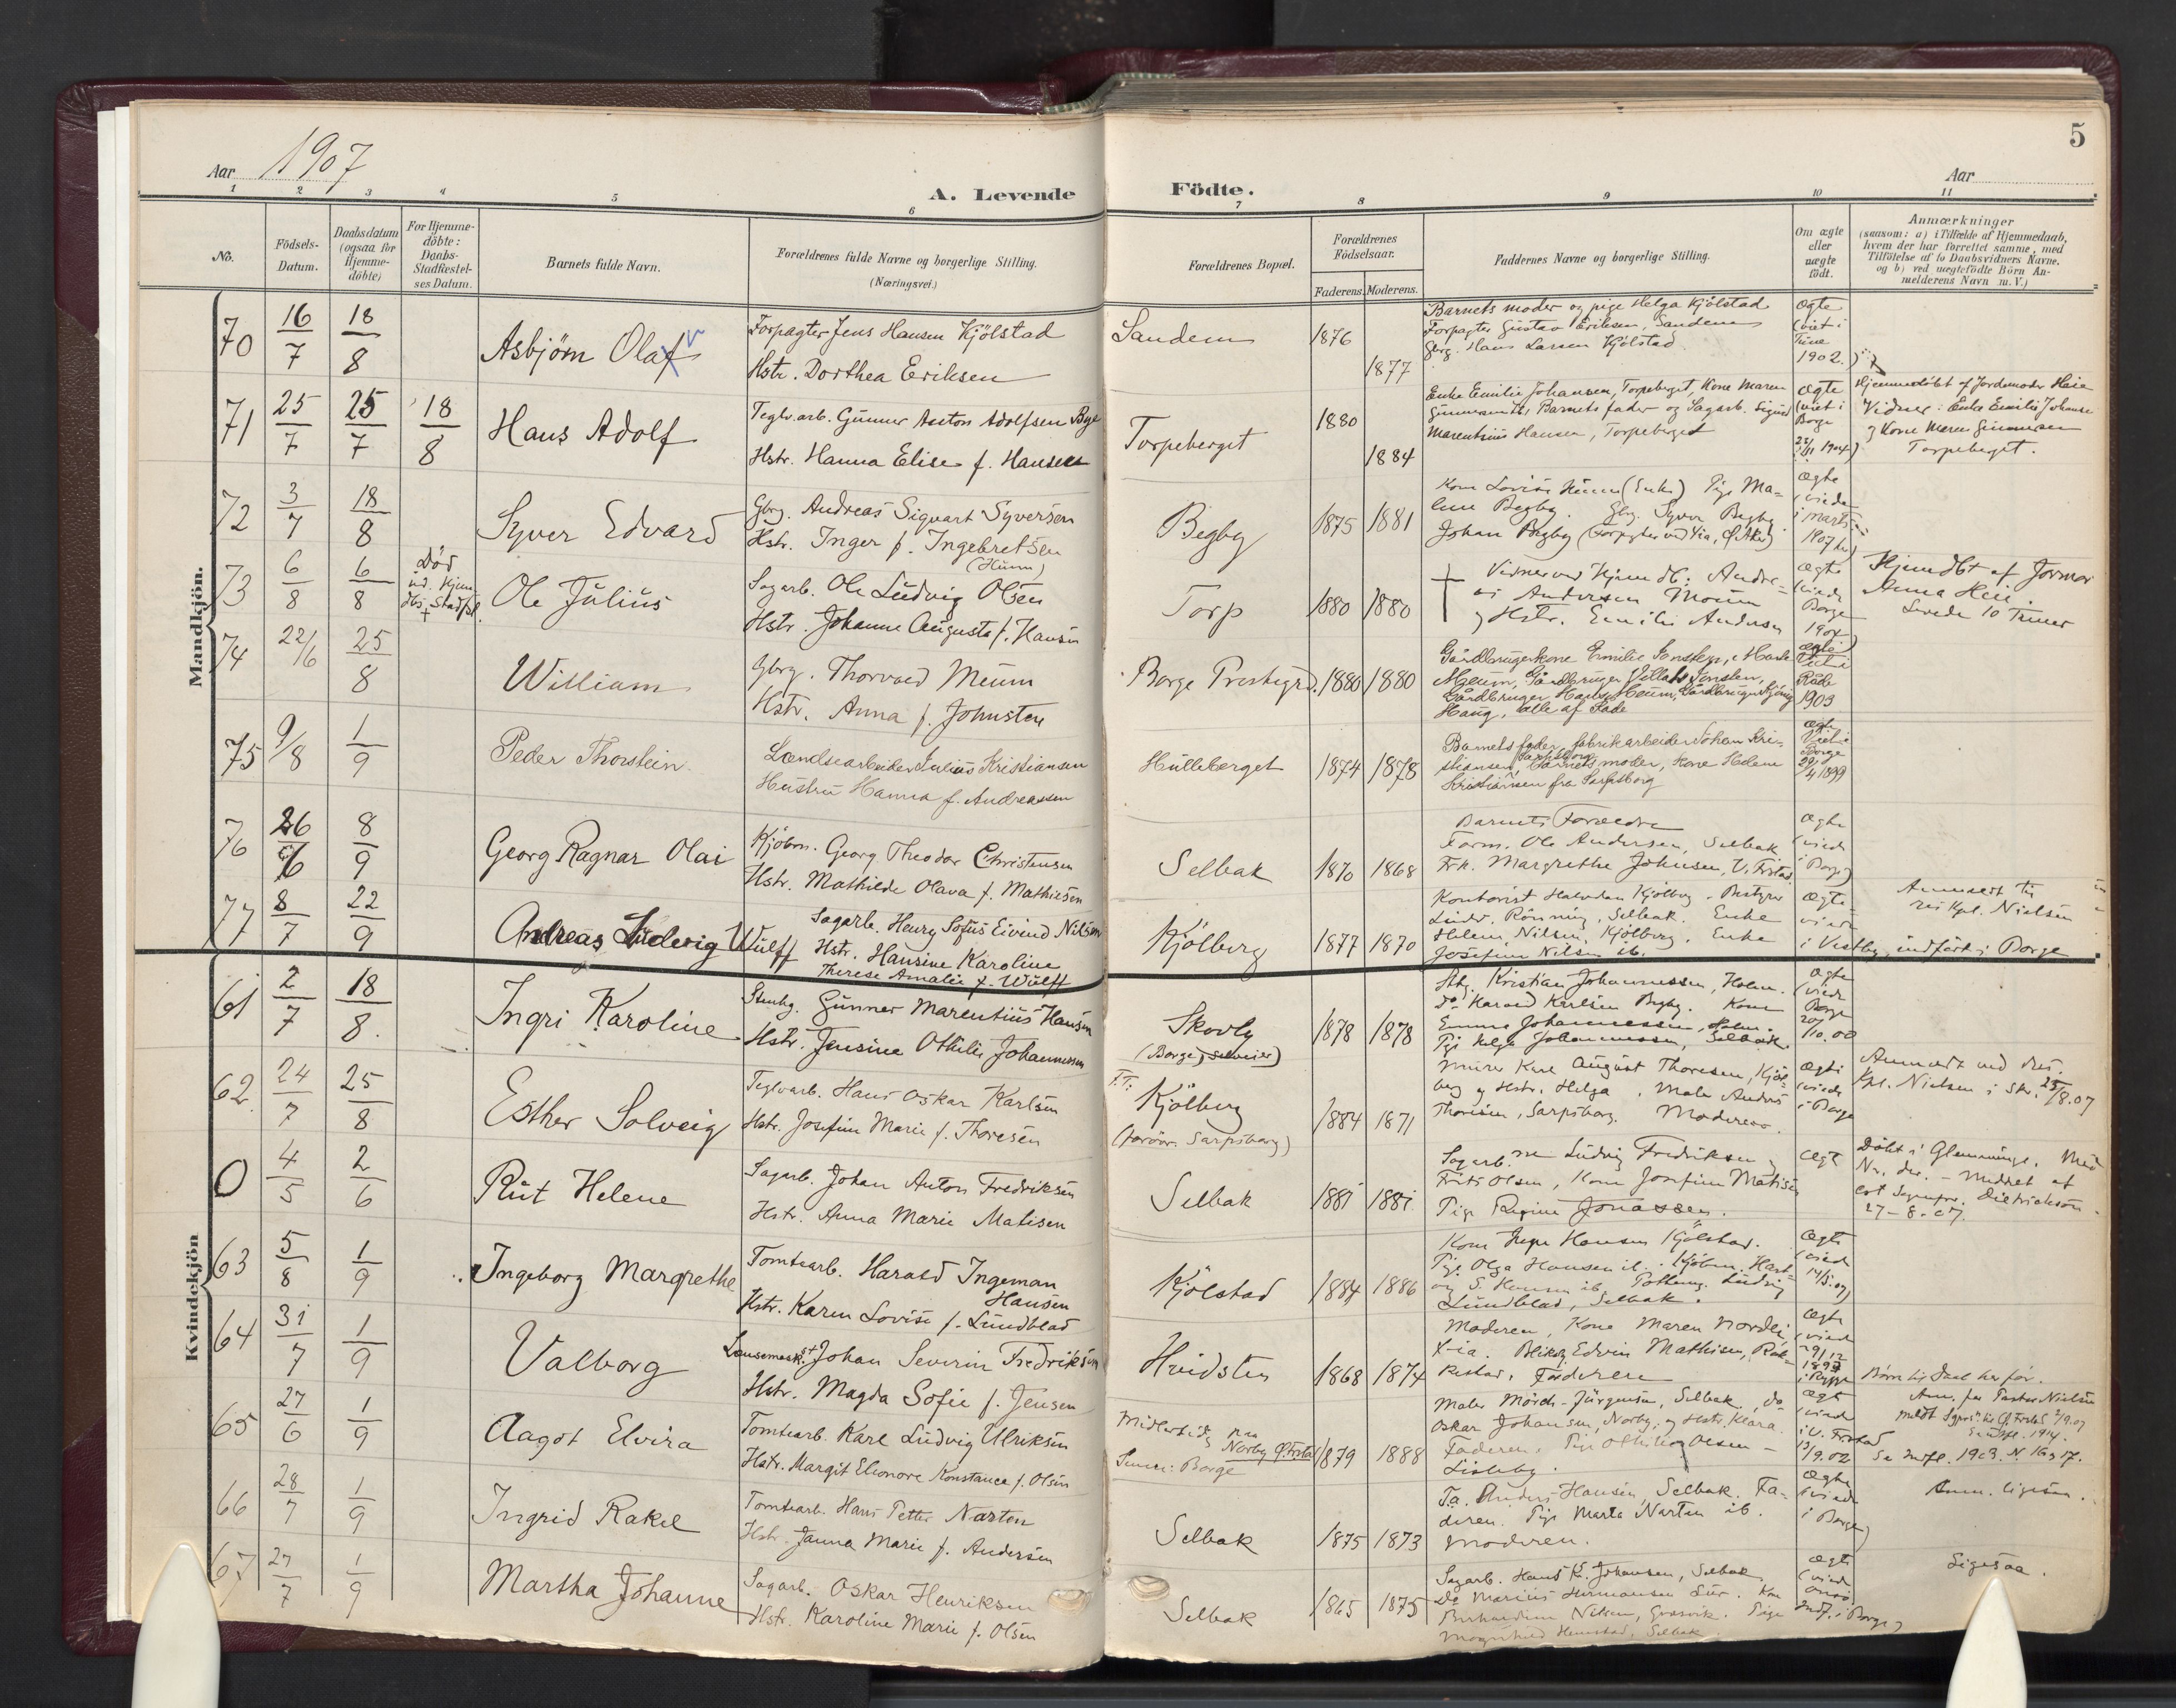 Aar 1907
A. Levende Födte.
5
Aar
1 2 3 4 5 6 7 8 9 10 11
No.
Födsels-Datum.
Daabsdatum (ogsaa for Hjemme-döbte)
For Hjemme-döbte: Daabs-Stadfæstel-ses Datum.
Barnets fulde Navn.
Forældrenes fulde Navne og borgerlige Stilling. (Næringsvei.)
Forældrenes Bopæl.
Forældrenes Födselsaar.
Faderens. Moderens.
Faddernes Navne og borgerlige Stilling.
Om ægte eller uægte födt.
Anmærkninger
(saasom: a) i Tilfælde af Hjemmedaab, hvem der har forrettet samme, med Tilföielse af to Daabsvidners Navne, og b) ved uægtefödte Börn An-melderens Navn m. V.)
Mandkjön.
70 16/7 18/8 Asbjörn Olaf
Forpagter Jens Hansen Kjölstad
Hstr. Dorthea Eriksen
Sandem 1876 1877
Barnets moder og pige Helga Kjölstad
Forpagter Gustav Eriksen, Sandem
Gbrg. Hans Larsen Kjölstad
Ægte (viet i Tune 1902.)
71 25/7 25/7 18/8 Hans Adolf
Teglv.arb. Gunnar Anton Adolfsen Bye
Hstr. Hanna Elise f. Hansen
Torpeberget 1880 1884
Enke Emilie Johansen, Torpeberget, Kone Maren
Barnets fader og Sagarb. Sigurd
Marentius Hansen, Torpeberget
Ægte (viet i Borge 1904)
Hjemmedöbt af Jordemoder Heie
Vidner: Enke Emilie Johansen
og Kone Maren Gunnersen
Torpeberget.
72 3/7 18/8 Syver Edvard
Gbrg. Andreas Sigvart Syversen
Hstr. Inger f. Ingebretsen
(Hunn)
Begby 1875 1881
Kone Lovise Hunn (Enke) Pige Ma-
lene Begby. Gbrg. Syver Begby
Johan Begby
ægte (viede i Marts 1907
73 6/8 6/8 Död
Ole Julius
Sagarb. Ole Ludvig Olsen
Hstr. Johanne Augusta f. Hansen
Torp 1880 1880
† Vidner ved Hjemdb: Andre-
as Andersen Moum
og Hstr. Emilie Andersen
ægte (viede Borge 1904)
Hjemdbt af Jormor
Anna Heie.
Levede 10 Timer
74 22/6 25/8 William
Gbrg. Thorvald Meum
Hstr. Anna f. Johnsten
Borge Prestegrd. 1880 1880
Gårdbrugerkone Emilie
Meum, Gårdbruger
Gårdbruger Hans Meum, Gårdbruger
Haug, alle af Råde
ægte Viet i Råde 1903
75 9/8 1/9 Peder Thorstein
Lændsearbeider Julius Kristiansen
Hustru Hanna f. Andreassen
Hulleberget 1874 1878
Barnets fader, fabrikarbeider Johan Kri-
stiansen, Sarpsborg, Barnets moder, Kone Helene
Kristiansen fra Sarpsborg
ægte Viet i Borge 29/4 1899
76 26/6 8/9 Georg Ragnar Olai
Kjöbm. Georg Theodor Christensen
Hstr. Mathilde Olava f. Mathisen
Selbak 1870 1868
Barnets Forældre
Form. Ole Andersen, Selbak
Frk. Margrethe Johnsen, V. Frstad
ægte (viede i Borge)
77 8/7 22/9 Andreas Ludevig Wulff
Sagarb. Henry Sofus Eivind Nilsen
Hstr. Hansine Karoline
Therese Amalie f. Wulff
Kjölberg 1877 1870
Kontorist Halvdan Kjölberg. Bestyrer
Rönning, Selbak. Enke
Helene Nilsen, Kjölberg. Enke
Josefine Nilsen ib.
ægte viede i Vestby, indfört i Borge
Anmeldt til
res Kpl. Nielsen
Kvindekjön
61 2/7 18/8. Ingri Karoline
Stenhg. Gunner Marentius Hansen
Hstr. Jensine Othilie Johannessen
Skovly 1878 1878
Kristian Johannessen, Holm.
do Harald Karlsen Begby. Kone
Emma Johannessen, Holm.
Pige Helga Johannessen, Selbak
ægte (viede Borge 20/10.00
62. 24/7 25/8 Esther Solveig
Teglvarb. Hans Oskar Karlsen
Hstr. Josefine Marie f. Thoresen
F.T: Kjölberg
(forövr. Sarpsborg)
1884 1871
Murer Karl August Thoresen, Kjöl-
berg og Hstr. Helga. Maler Anders
Thoresen, Sarpsborg. Moderen.
ægte (viede i Borge
Anmeldt ved res.
Kpl. Nielsen i Skr. 25/8.07
0 4/5 2/6 Rut Helene
Sagarb. Johan Anton Fredriksen
Hstr. Anna Marie Matisen
Selbak 1881 1881
Sagarb.ne Ludvig Fredriksen og
Frits Olsen, Kone Josefine Matisen
Pige Regine Jonassen.
ægte
Döbt i Glemminge. Med
Nr. der. - Meddelt af
cst Sognepr. Dietrichson.
27-8-07.
63 5/8 1/9 Ingeborg Margrethe
Tomtearb. Harald Ingeman
Hansen
Hstr. Karen Lovise f. Lundblad
Kjölstad 1884 1886
Kone Inger Hansen Kjölstad.
Pige Olga Hansen ib. Kjöbm.
Hansen ib. Ludvig
Lundblad, Selbak.
ægte (viede 14/5.07)
64 31/7 1/9 Valborg
Johan Severin Fredriksen
Hstr. Magda Sofie f. Jensen
Hvidsten 1868 1874
Moderen, Kone Maren Nordli,
Edvin Mathisen,
Faderen
ægte (viede 29/12
65 27/6 1/9 Aagot Elvira
Tomtearb. Karl Ludvig Ulriksen
Hstr. Margit Elionore Konstance f. Olsen
Midlertidg paa
Norby Ø.Frstad
Borge
1879 1888
Maler Mörch-Jürgensen, Selbak, do
Oskar Johansen, Norby, og Hstr. Klara
Faderen. Pige Othilie Olsen -
Lisleby.
ægte (viede i V. Frstad 13/9.02
Ann. for Pastor Nielsen
66 28/7 1/9 Ingrid Rakel
Tomtearb. Hans Petter Narton
Hstr. Janna Marie f. Andersen
Selbak 1875 1873
Anders Hansen, Selbak. Fa-
deren. Pige Marta Narten ib.
Moderen.
Ægte (viede i Borge)
Anm. ligesaa.
67 27/7 1/9 Martha Johanne
Sagarb. Oskar Henriksen
Hstr. Karoline Marie f. Olsen
Selbak 1865 1875
Sagarb. Hans K. Johansen, Selbak
Do Marius Hermansen Lur. Kone
Bernhardine Nilsen, Gresvik. Pige
Magnhild Henstad, Selbak
ægte (viede
Ligesaa.